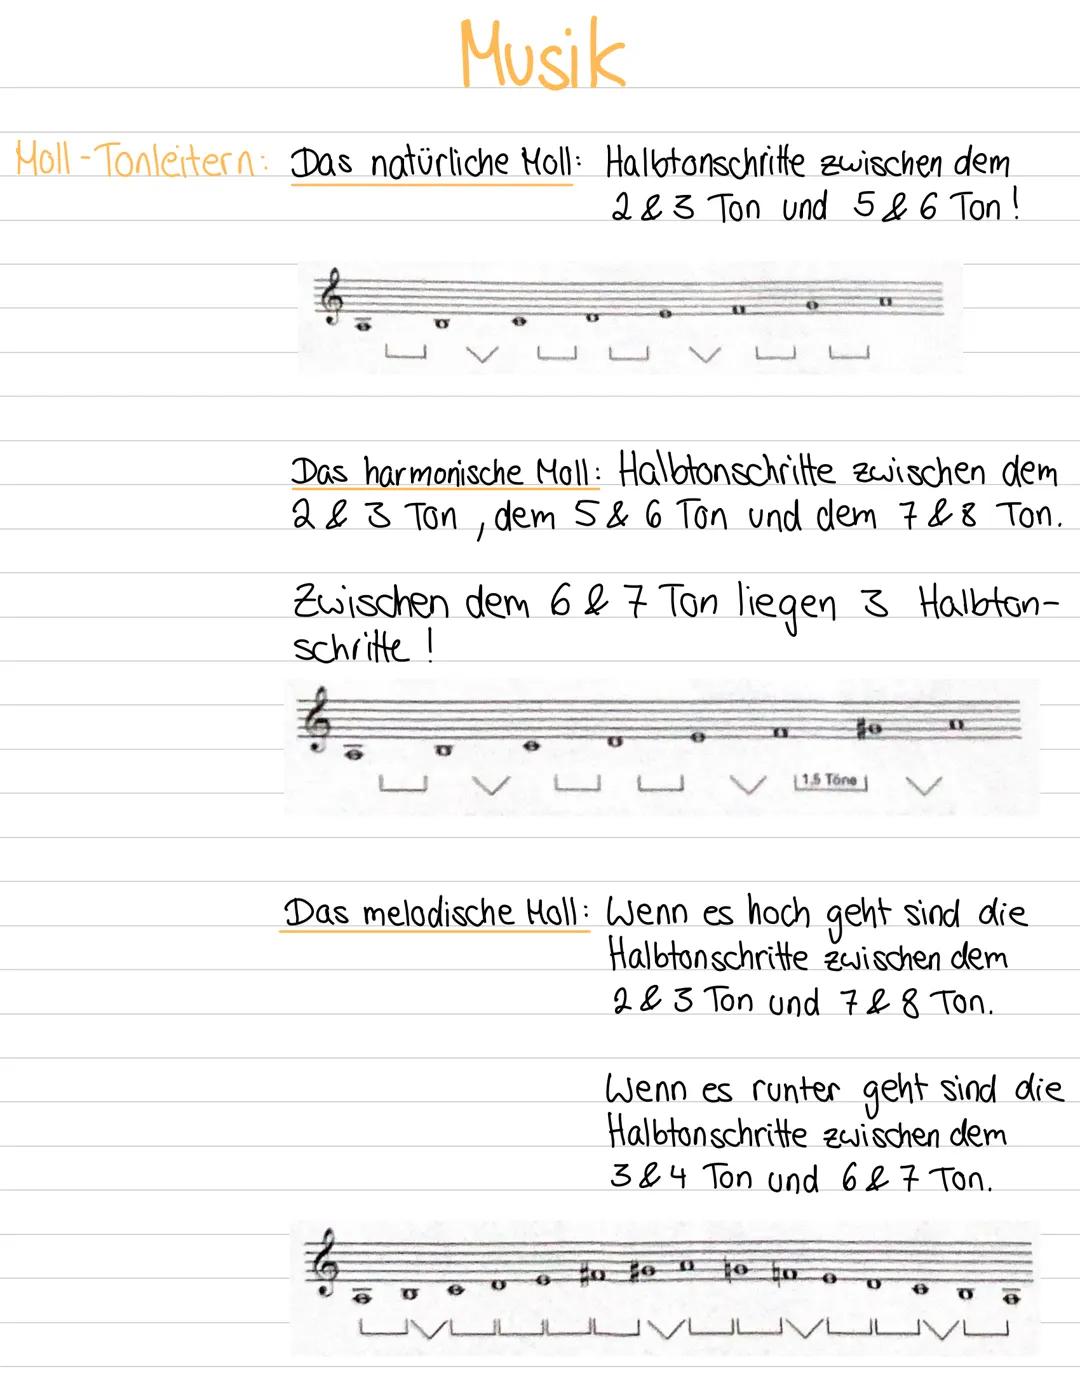 Musik
Moll-Tonleitern: Das natürliche Moll: Halbtonschritte zwischen dem
2 & 3 Ton und 5 & 6 Ton!
Das harmonische Moll: Halbtonschritte zwischen dem
2 & 3 Ton, dem 5 & 6 Ton und dem 7 & 8 Ton.
Zwischen dem 6 & 7 Ton liegen 3 Halbton-
schritte!
1,5 Töne
Das melodische Moll: Wenn es hoch geht sind die
Halbtonschritte zwischen dem
2 & 3 Ton und 7 & 8 Ton.
Wenn es runter geht sind die
Halbtonschritte zwischen dem
3 & 4 Ton und 6 & 7 Ton.